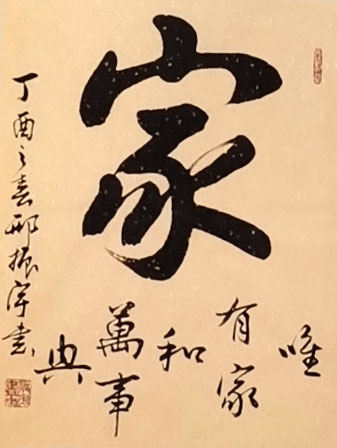 家
唯
有家
和
萬事
興
丁酉之春邢振宇書